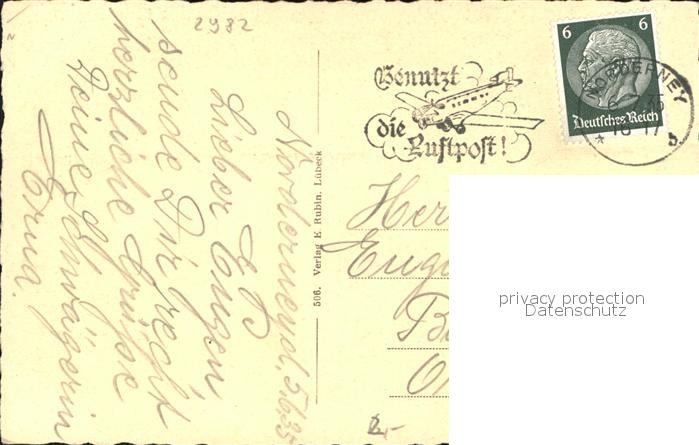 2982
Norderney d. 5.6.35
Lieber Eugen
sende Dir recht
herzliche Grüsse
Deine Schwägerin
Erna.
506. Verlag E. Rubin, Lübeck
Benutzt
die
Luftpost!
6 6
Deutsches Reich
NORDERNEY
16-17
b
Her
Euge
privacy protection
Datenschutz